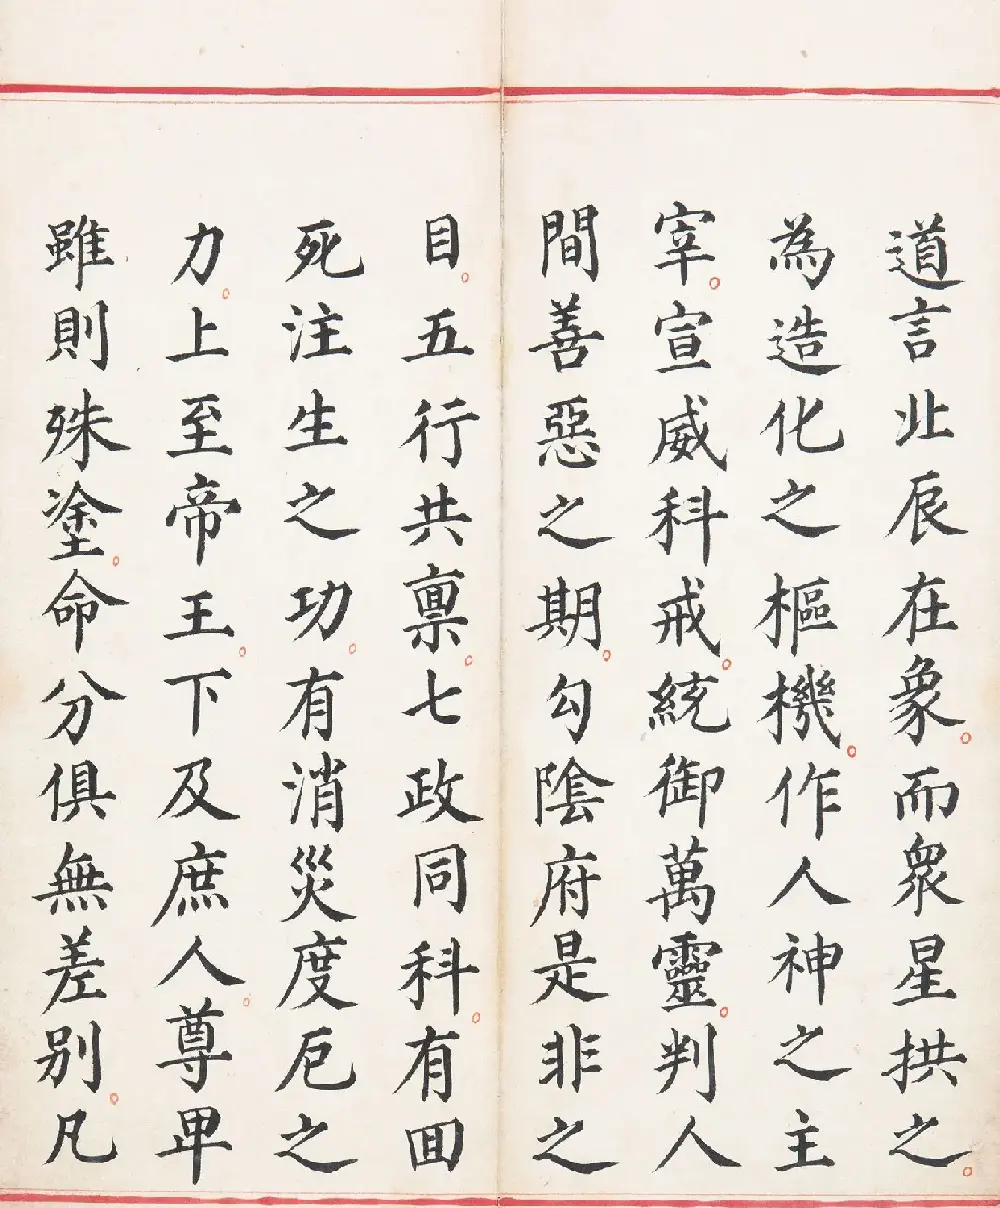 道言北辰在象。而衆星拱之。
為造化之樞機。作人神之主
宰。宣威科戒。統御萬靈。判人
間善惡之期。勾陰府是非之
目。五行共稟。七政同科。有回
死注生之功。有消災度厄之
力。上至帝王。下及庶人。尊卑
雖則殊塗。命分俱無差別。凡